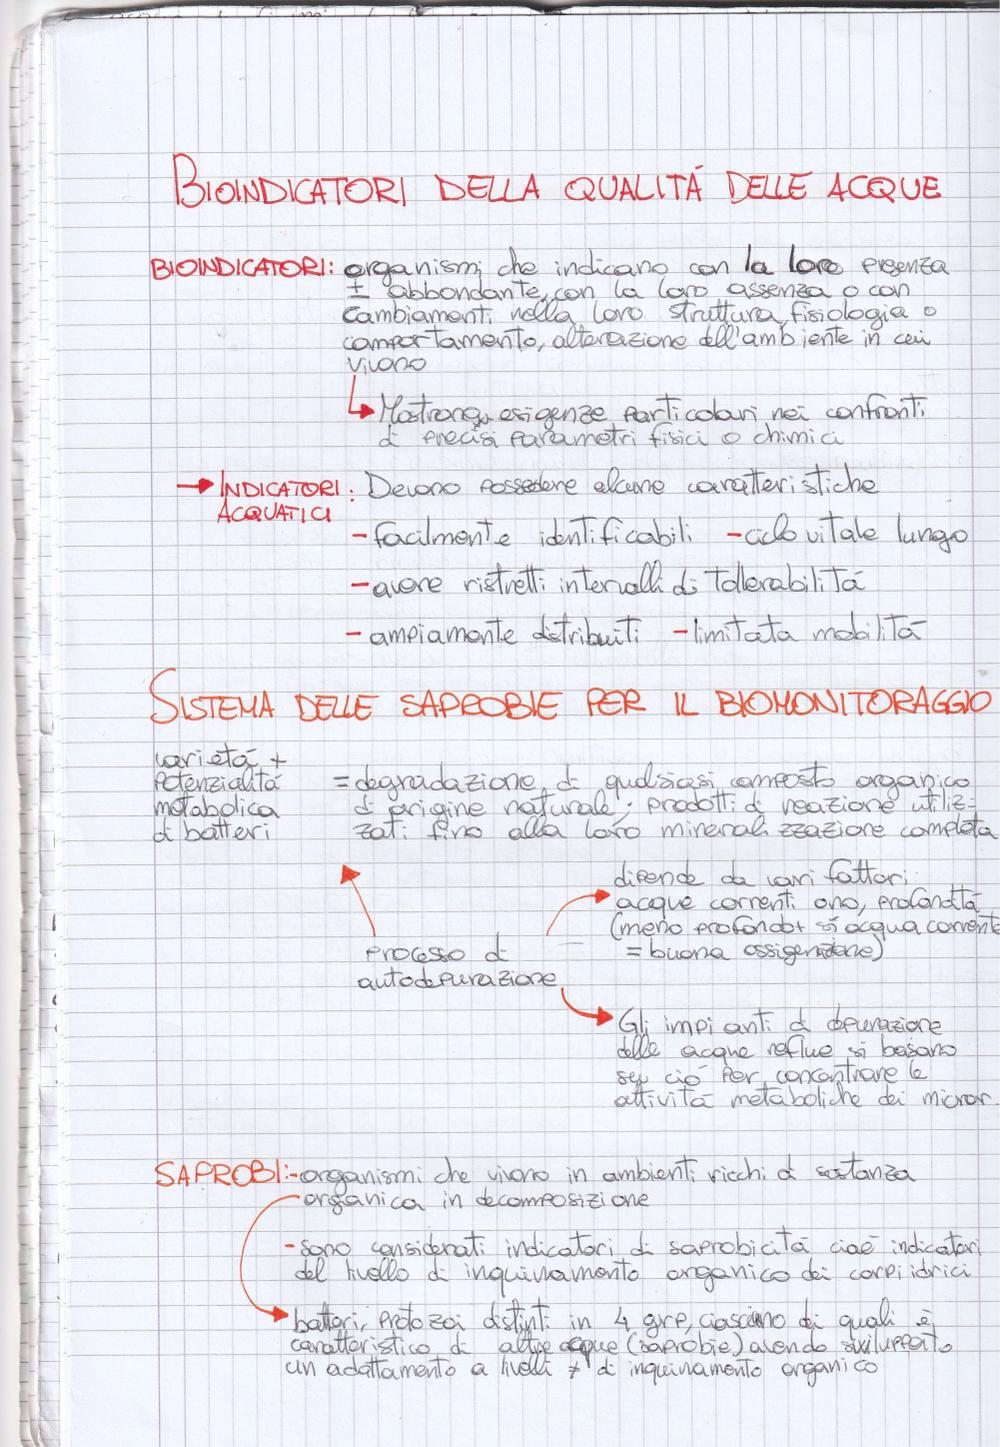 BIOINDICATORI DELLA QUALITÁ DELLE ACQUE
BIOINDICATORI: organismi che indicano con la loro presenza
± abbondante, con la loro assenza o con
cambiamenti nella loro struttura, fisiologia o
comportamento, alterazione dell'ambiente in cui
vivono
Mostrano esigenze particolari nei confronti
di precisi parametri fisici o chimici
→ INDICATORI ACQUATICI: Devono possedere alcune caratteristiche
- facilmente identificabili - ciclo vitale lungo
- avere ristretti intervalli di tollerabilitá
- ampiamente distribuiti - limitata mobilitá
SISTEMA DELLE SAPROBIE PER IL BIOMONITORAGGIO
varietá +
potenzialitá
metabolica
di batteri
= degradazione di qualsiasi composto organico
di origine naturale; prodotti di reazione utiliz-
zati fino alla loro mineralizzazione completa
processo di
autodepurazione
dipende da vari fattori:
acque correnti o no, profonditá
(meno profondo + si acqua corrente
= buona ossigenazione)
Gli impianti di depurazione
delle acque reflue si basano
su ció per concentrare le
attivitá metaboliche dei micror.
SAPROBI: - organismi che vivono in ambienti ricchi di sostanza
organica in decomposizione
- sono considerati indicatori di saprobicitá cioé indicatori
del livello di inquinamento organico dei corpi idrici
batteri, protozoi distinti in 4 grp, ciascuno dei quali é
caratteristico di acque (saprobie) avendo sviluppato
un adattamento a livelli ≠ di inquinamento organico